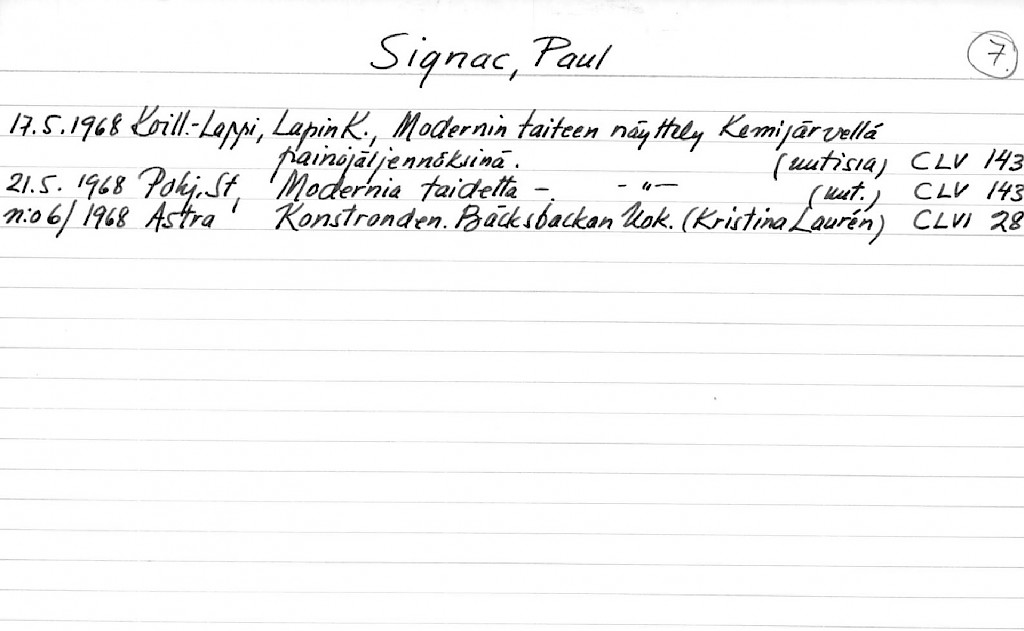 Signac, Paul 7.
17.5.1968 Koill.-Lappi, Lapin K., Modernin taiteen näyttely Kemijärvellä
painojäljennöksinä. (uutisia) CLV 143
21.5. 1968 Pohj. St, Modernia taidetta - - " - (uut.) CLV 143
n:o 6/1968 Astra Konstronden. Bäcksbackan kok. (Kristina Laurén) CLVI 28